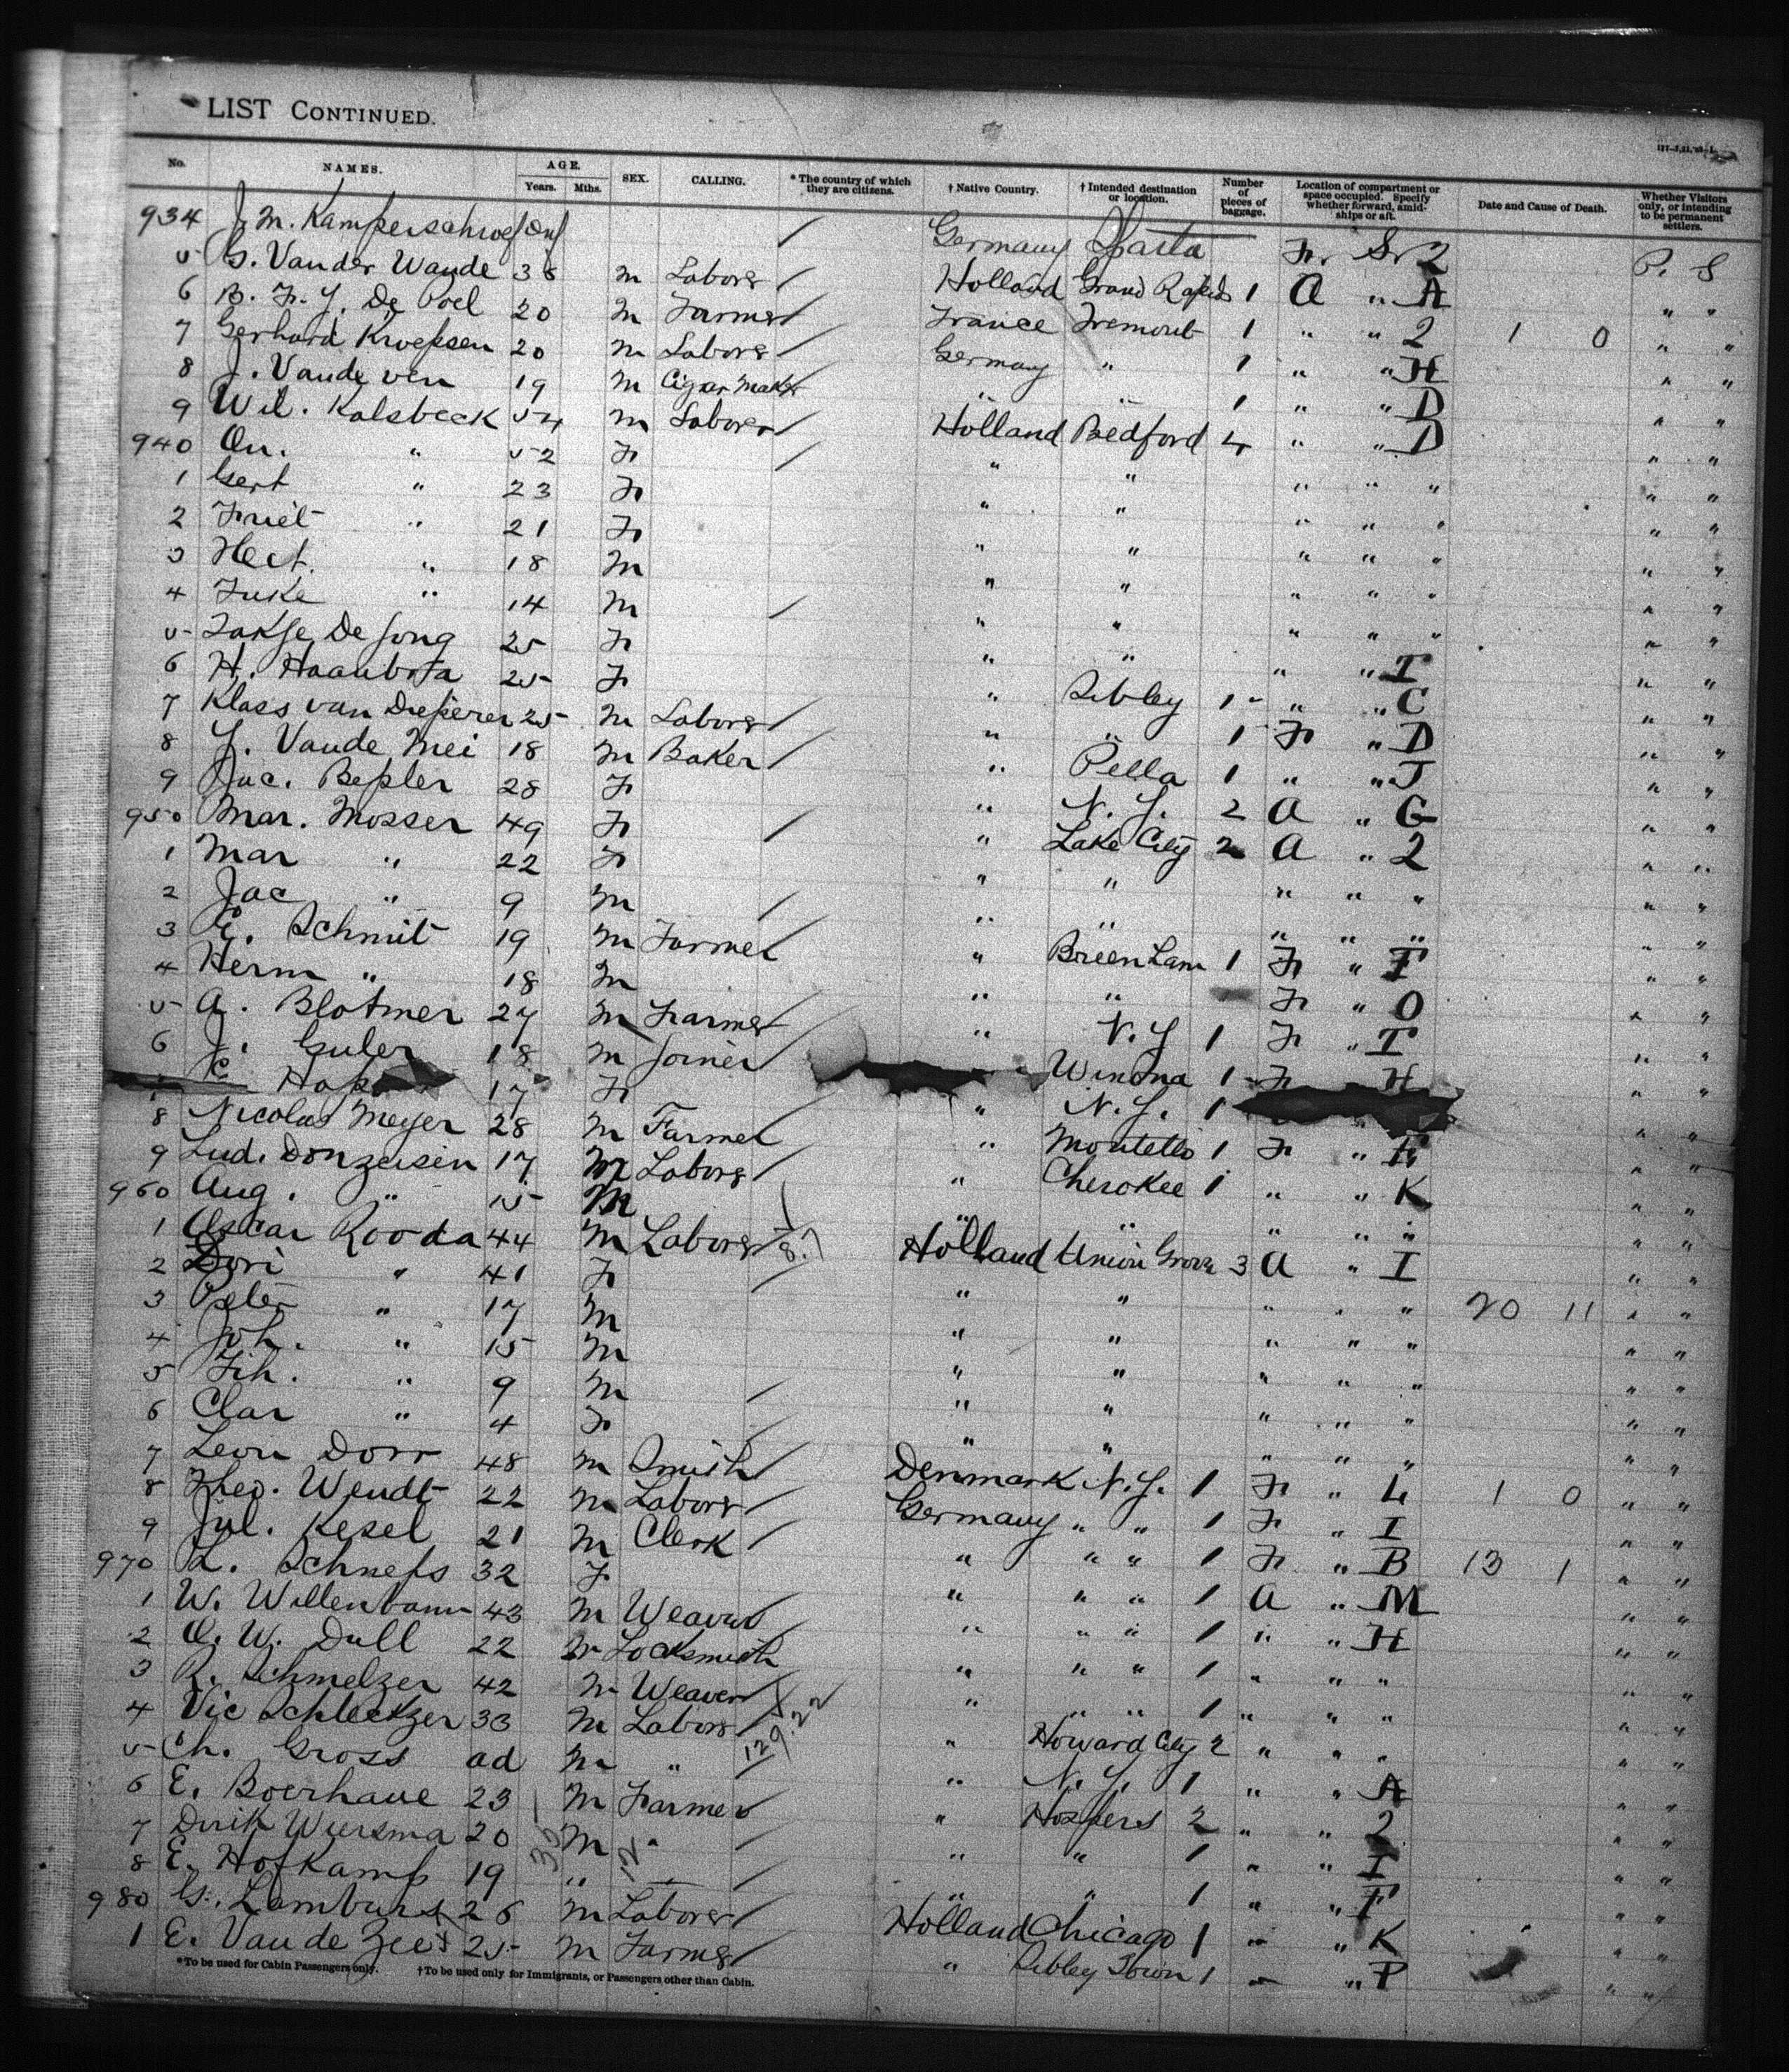 LIST CONTINUED.
No. NAMES. AGE. Years. Mths. SEX. CALLING. * The country of which they are citizens. † Native Country. † Intended destination or location. Number of pieces of baggage. Location of compartment or space occupied. Specify whether forward, amidships or aft. Date and Cause of Death. Whether Visitors only, or intending to be permanent settlers.
934 J. M. Germany Sparta Fr. Sr 2 P. S
5 G. Vander Waude 38 M Labore Holland Grand Rapids 1 A " A " "
6 B. F. J. De Poel 20 M Farmer France Fremont 1 " " 2 1 0 " "
7 Gerhard Kroepsen 20 M Labore Germany " 1 " " H " "
8 J. Vande ven 19 M Cigar Maker " " 1 " " D " "
9 Wil. Kalsbeek 54 M Laborer Holland Bedford 4 " " D " "
940 An. " 52 F " " " " " " "
1 Gert " 23 F " " " " " " "
2 Friet " 21 F " " " " " " "
3 Hect. " 18 M " " " " " " "
4 Fuke " 14 M " " " " " " "
5 De Jong 25 F " " " " I " "
6 H. 25 F " Sibley 1 " " C " "
7 Klass van Dieperen 25 M Labore " " 1 Fr " D " "
8 J. Vande Mei 18 M Baker " Pella 1 " " J " "
9 Jac. Bepler 28 F " N. Y. 2 A " G " "
950 Mar. Mosser 49 F " Lake City 2 A " 2 " "
1 Mar " 22 F " " " " " " "
2 Jac " 9 M " " " " " " "
3 G. Schmit 19 M Farmer " 1 Fr " F " "
4 Herm " 18 M " " Fr " O " "
5 A. Blotmer 27 M Farmer " N. Y 1 Fr " T " "
6 J. Guler 18 M Joiner Winona 1 Fr H " "
17 F " N. Y. 1 " "
8 Nicolas Meyer 28 M Farmer " Montello 1 Fr " " "
9 Lud. Donzeisen 17 M Labore " Cherokee 1 " " K " "
960 Aug. " 15 M " " " " " " "
1 Oscar Rooda 44 M Laborer Holland Union Grove 3 A " I " "
2 Dori " 41 F " " " " " 20 11 " "
3 Peter " 17 M " " " " " " "
4 Joh. " 15 M " " " " " " "
5 Fih. " 9 M " " " " " " "
6 Clar " 4 F " " " " " " "
7 Leon Dorr 48 M Smith Denmark N. Y. 1 Fr " L 1 0 " "
8 Theo. Wendt 22 M Labore Germany " " 1 Fr " I " "
9 Jul. Kesel 21 M Clerk " " " 1 Fr " B 13 1 " "
970 L. Schneps 32 F " " " 1 A " M " "
1 W. Willenbaum 43 M Weaver " " " 1 " " H " "
2 O. W. Dull 22 M Locksmith " " " 1 " " " " "
3 R. Schmelzer 42 M Weaver " " " 1 " " " " "
4 Vic Schleckzer 33 M Labore " Howard City 2 " " " " "
5 Ch. Gross ad M " " N. Y. 1 " " A " "
6 E. Boerhave 23 M Farmer " Hospers 2 " " 2 " "
7 Dirik Wiersma 20 M " " " 1 " " I " "
8 E. Hofkamp 19 " " " " 1 " " F " "
980 G. 26 M Laborer Holland Chicago 1 " " K " "
1 E. Van de Zee 25 M Farmer " Sibley Iown 1 " " P " "
*To be used for Cabin Passengers only. †To be used only for Immigrants, or Passengers other than Cabin.